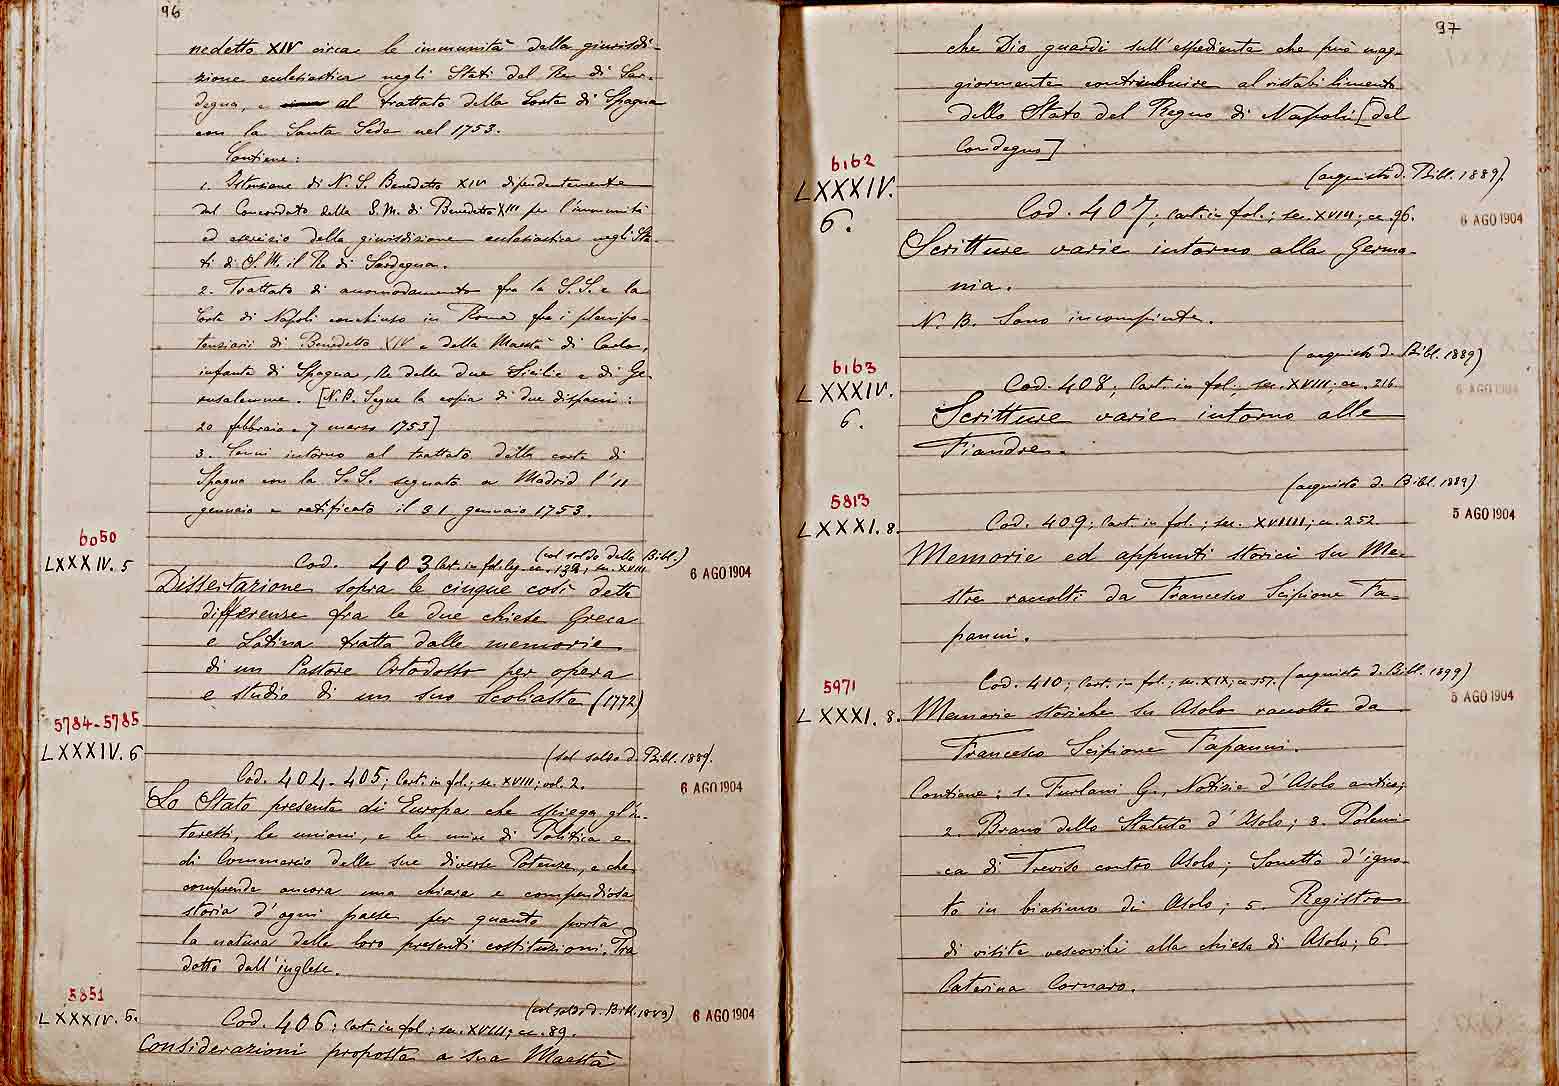 96
nedetto XIV circa le immunità della giurisdi-
zione ecclesiastica negli Stati del Re di Sar-
degna, e al trattato della Corte di Spagna
con la Santa Sede nel 1753.
Contiene:
1. Istruzione di N. S. Benedetto XIV dipendentemente
dal Concordato della S. M. di Benedetto XIII per l'immunità
ed esercizio della giurisdizione ecclesiastica negli Sta-
ti di S. M. il Re di Sardegna.
2. Trattato di accomodamento fra la S. S. e la
Corte di Napoli conchiuso in Roma fra i plenipo-
tenziarii di Benedetto XIV e della Maestà di Carlo,
infante di Spagna, Re delle due Sicilie e di Ge-
rusalemme. [N.B. Segue la copia di due dispacci:
20 febbraio e 7 marzo 1753]
3. Cenni intorno al trattato della corte di
Spagna con la S. S. segnato a Madrid l'11
gennaio e ratificato il 31 gennaio 1753.
6050
LXXXIV. 5
(col soldo della Bibl.)
Cod. 403 Cart. in fol. leg. cc. 132; sec. XVIII
6 AGO 1904
Dissertazione sopra le cinque così dette
differenze fra le due chiese Greca
e Latina tratta dalle memorie
di un Pastore Ortodosso per opera
e studio di un suo Scoliasta (1772)
5784-5785
LXXXIV. 6
(col soldo d. Bibl. 1889.
Cod. 404-405; Cart. in fol.; sec. XVIII; vol. 2.
6 AGO 1904
Lo Stato presente di Europa che spiega gl'in-
teressi, le unioni, e le mire di Politica e
di Commercio delle sue diverse Potenze, e che
comprende ancora una chiara e compendiosa
storia d'ogni paese per quanto porta
la natura delle loro presenti costituzioni. Tra
dotto dall'inglese.
5851
LXXXIV. 6.
(col soldo d. Bibl. 1889)
Cod. 406; Cart. in fol.; sec. XVIII; cc. 89.
6 AGO 1904
Considerazioni proposte a sua Maestà
97
che Dio guardi sull'espediente che può mag-
giormente contribuire al ristabilimento
dello Stato del Regno di Napoli [del
Contegna]
6162
LXXXIV.
6.
(acquisto d. Bibl. 1889).
Cod. 407; Cart. in fol.; sec. XVIII; cc. 96.
6 AGO 1904
Scritture varie intorno alla Germa-
nia.
N. B. Sono incompiute.
6163
LXXXIV.
6.
(acquisto d. Bibl. 1889)
Cod. 408; Cart. in fol.; sec. XVIII; cc. 216
6 AGO 1904
Scritture varie intorno alle
Fiandre.
5813
LXXXI. 8.
(acquisto d. Bibl. 1889)
Cod. 409; Cart. in fol.; sec. XVIIII; cc. 252.
5 AGO 1904
Memorie ed appunti storici su Me-
stre raccolti da Francesco Scipione Fa-
panni.
5971
LXXXI. 8.
Cod. 410; Cart. in fol.; sec. XIX; cc. 157. (acquisto d. Bibl. 1899)
5 AGO 1904
Memorie storiche su Asolo raccolte da
Francesco Scipione Fapanni.
Contiene: 1. Furlani G., Notizie d'Asolo antico;
2. Brano dello Statuto d'Asolo; 3. Polemi-
ca di Treviso contro Asolo; Sonetto d'igno-
to in biasimo di Asolo; 5. Registro
di visite vescovili alla chiesa di Asolo; 6.
Caterina Cornaro.